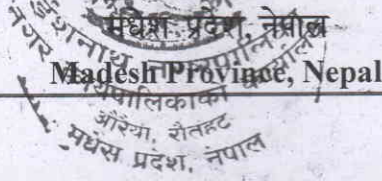 मधेश प्रदेश, नेपाल
Madesh Province, Nepal
ईशनाथ नगरपालिका
नगर कार्यपालिकाको कार्यालय
औरैया, रौतहट
मधेस प्रदेश, नेपाल